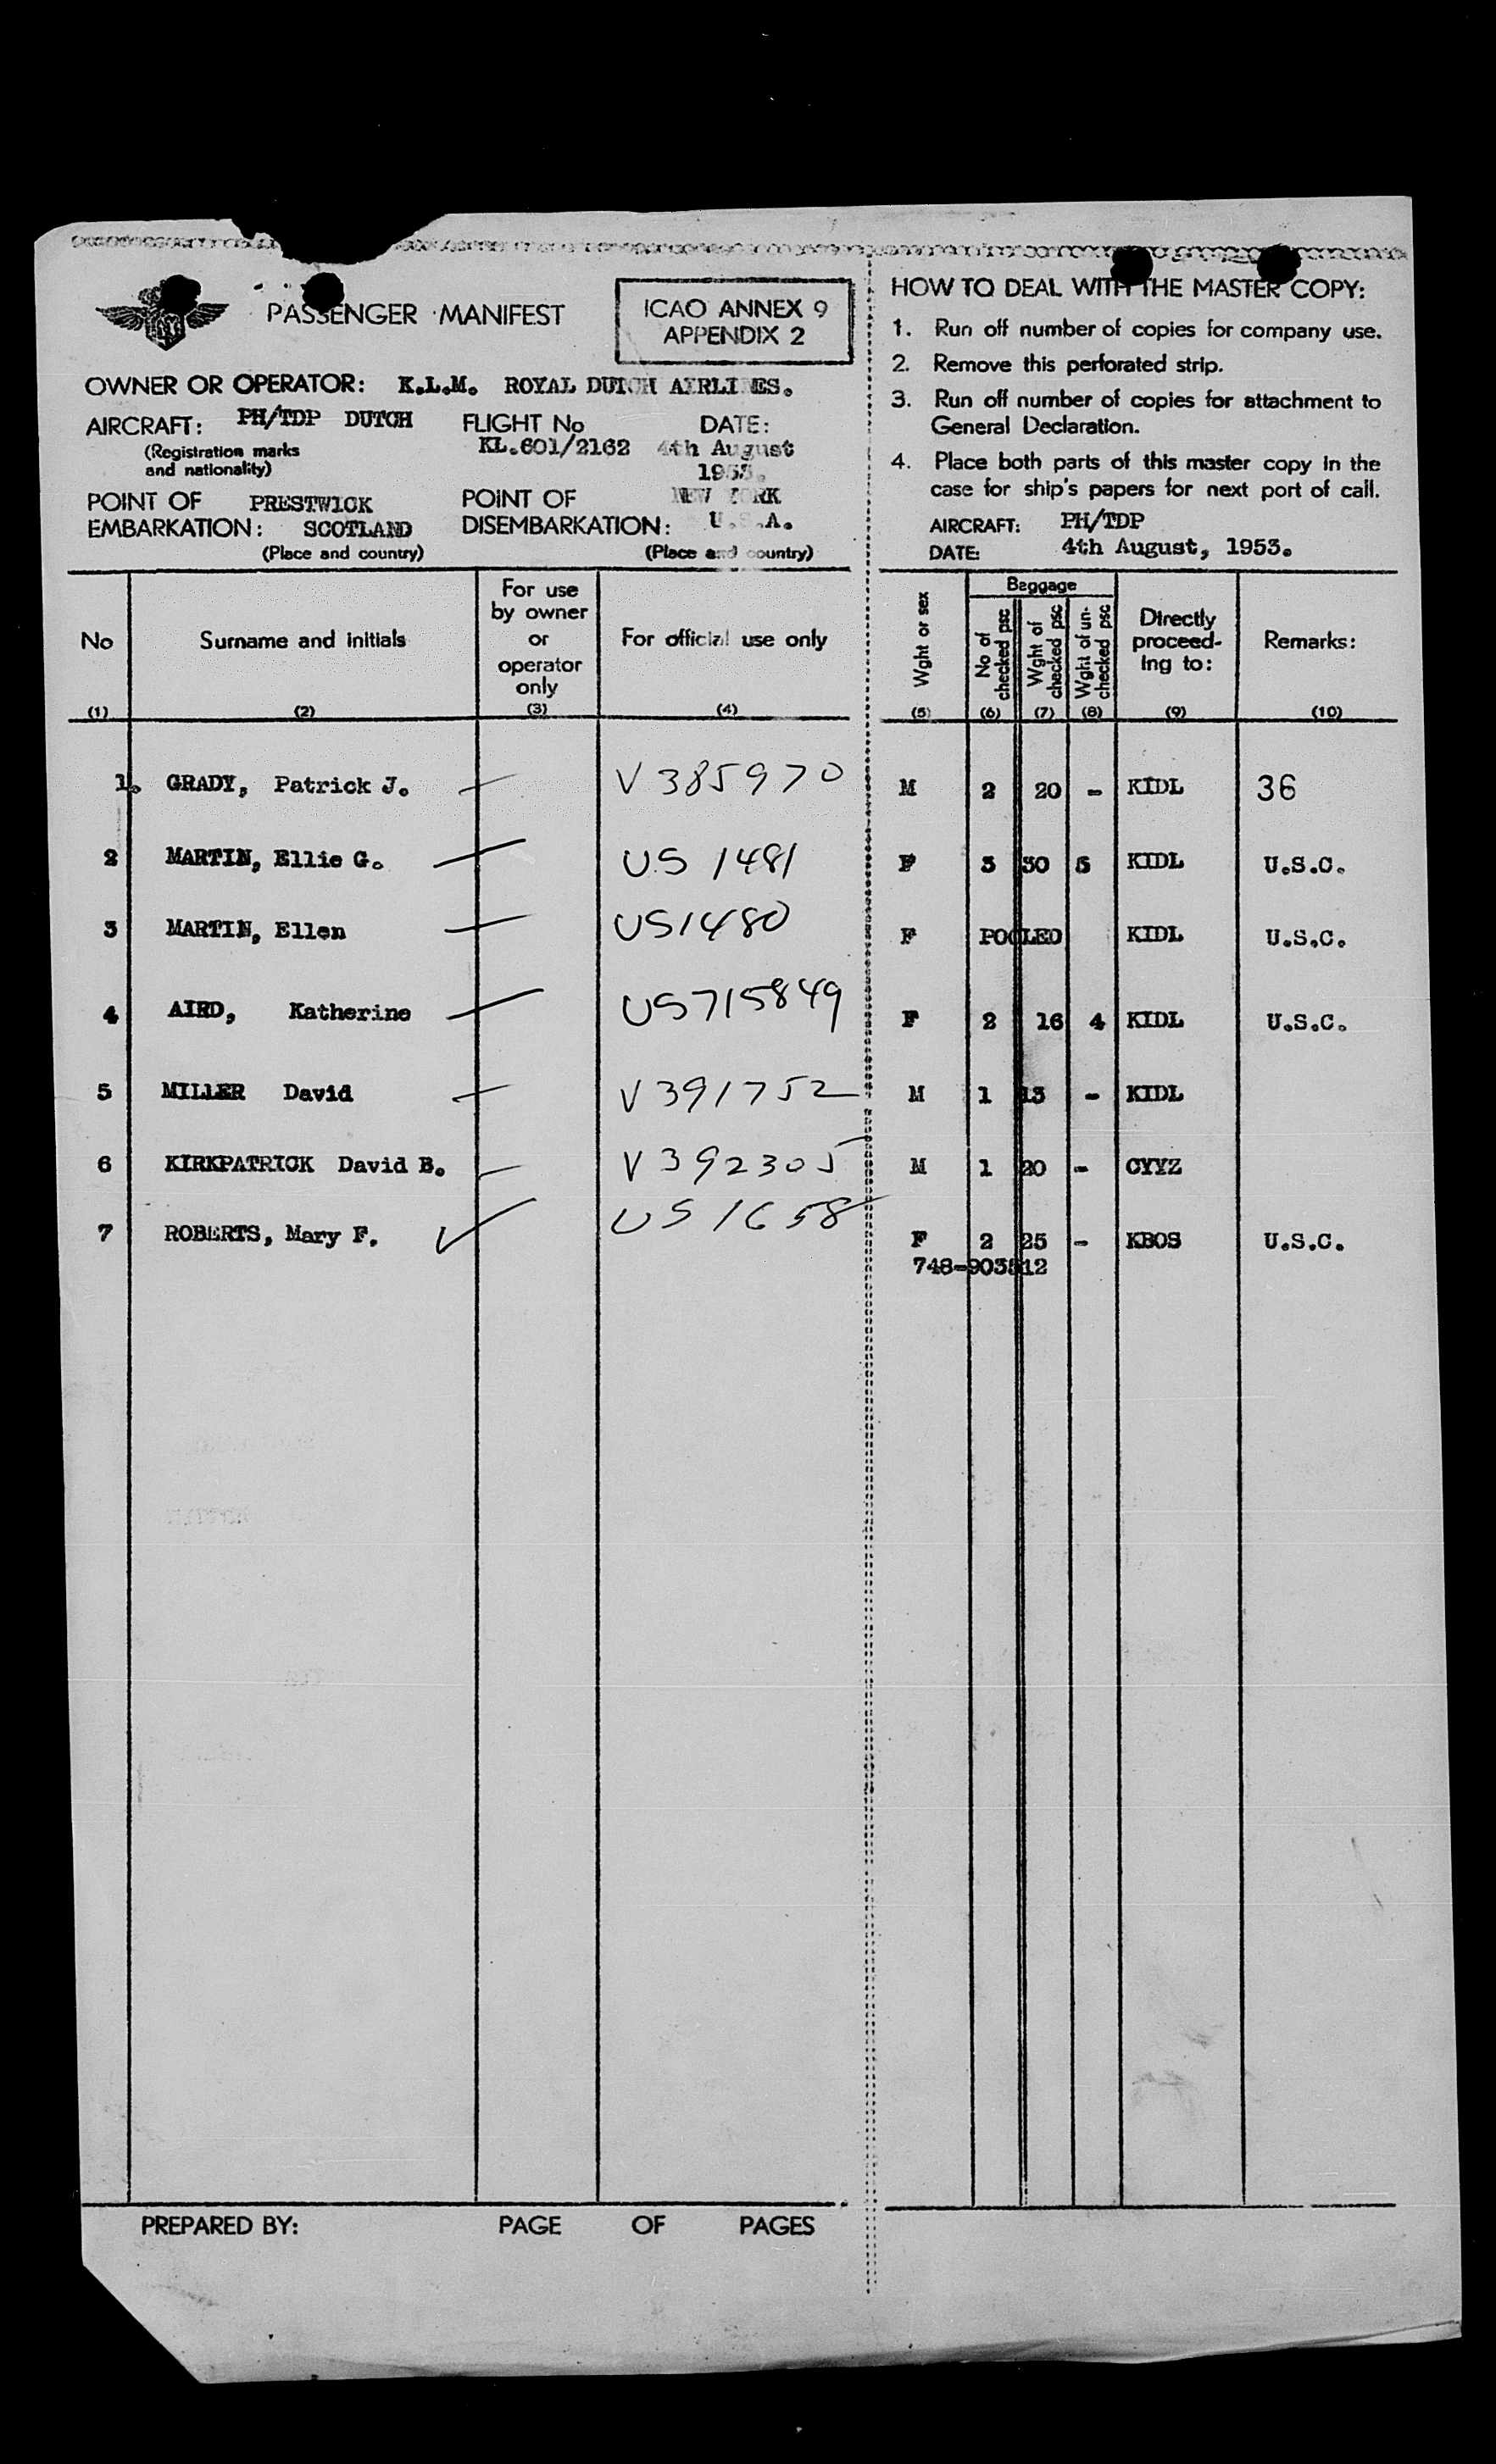 PASSENGER MANIFEST
ICAO ANNEX 9
APPENDIX 2
OWNER OR OPERATOR: K.L.M. ROYAL DUTCH AIRLINES.
AIRCRAFT: PH/TDP DUTCH
(Registration marks
and nationality)
FLIGHT No
KL.601/2162
DATE:
4th August
1953.
POINT OF
EMBARKATION: PRESTWICK
SCOTLAND
(Place and country)
POINT OF
DISEMBARKATION: NEW YORK
U.S.A.
(Place and country)
HOW TO DEAL WITH THE MASTER COPY:
1. Run off number of copies for company use.
2. Remove this perforated strip.
3. Run off number of copies for attachment to
General Declaration.
4. Place both parts of this master copy in the
case for ship's papers for next port of call.
AIRCRAFT: PH/TDP
DATE: 4th August, 1953.
No
(1)
Surname and initials
(2)
For use
by owner
or
operator
only
(3)
For official use only
(4)
Wght or sex
(5)
Baggage
No of
checked psc
(6)
Wght of
checked psc
(7)
Wght of un-
checked psc
(8)
Directly
proceed-
ing to:
(9)
Remarks:
(10)
1. GRADY, Patrick J. — V 385970 M 2 20 - KIDL 36
2 MARTIN, Ellie G. — US 1481 F 3 30 5 KIDL U.S.C.
3 MARTIN, Ellen — US1480 F POOLED KIDL U.S.C.
4 AIRD, Katherine — US715849 F 2 16 4 KIDL U.S.C.
5 MILLER David — V 391752 M 1 13 - KIDL
6 KIRKPATRICK David B. — V 392305 M 1 20 - CYYZ
7 ROBERTS, Mary F. ✓ US 1658 F 2 25 - KBOS U.S.C.
748-903512
PREPARED BY:
PAGE OF PAGES